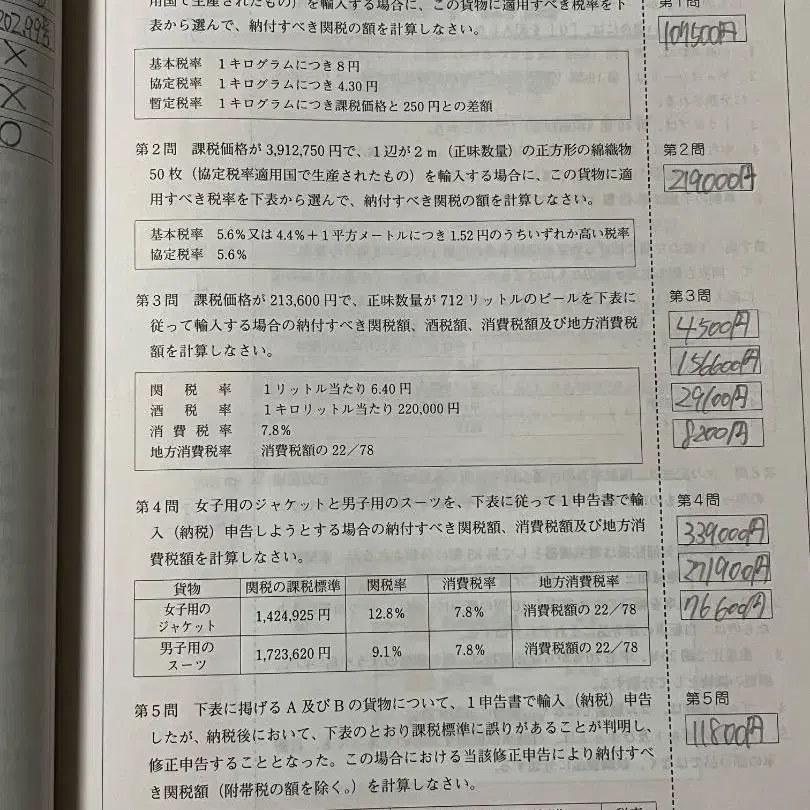 202.99号
×
×
○
用国で生産されたもの）を輸入する場合に、この貨物に適用すべき税率を下
表から選んで、納付すべき関税の額を計算しなさい。
基本税率 1キログラムにつき8円
協定税率 1キログラムにつき4.30円
暫定税率 1キログラムにつき課税価格と250円との差額
第1問
107500円
第2問 課税価格が3,912,750円で、1辺が2m（正味数量）の正方形の綿織物
50枚（協定税率適用国で生産されたもの）を輸入する場合に、この貨物に適
用すべき税率を下表から選んで、納付すべき関税の額を計算しなさい。
基本税率 5.6%又は4.4%＋1平方メートルにつき1.52円のうちいずれか高い税率
協定税率 5.6%
第2問
219000円
第3問 課税価格が213,600円で、正味数量が712リットルのビールを下表に
従って輸入する場合の納付すべき関税額、酒税額、消費税額及び地方消費税
額を計算しなさい。
関税率 1リットル当たり6.40円
酒税率 1キロリットル当たり220,000円
消費税率 7.8%
地方消費税率 消費税額の22／78
第3問
4500円
156600円
29100円
8200円
第4問 女子用のジャケットと男子用のスーツを、下表に従って1申告書で輸
入（納税）申告しようとする場合の納付すべき関税額、消費税額及び地方消
費税額を計算しなさい。
貨物 関税の課税標準 関税率 消費税率 地方消費税率
女子用の
ジャケット 1,424,925円 12.8% 7.8% 消費税額の22／78
男子用の
スーツ 1,723,620円 9.1% 7.8% 消費税額の22／78
第4問
339000円
271900円
76600円
第5問 下表に掲げるA及びBの貨物について、1申告書で輸入（納税）申告
したが、納税後において、下表のとおり課税標準に誤りがあることが判明し、
修正申告することとなった。この場合における当該修正申告により納付すべ
き関税額（附帯税の額を除く。）を計算しなさい。
第5問
11800円